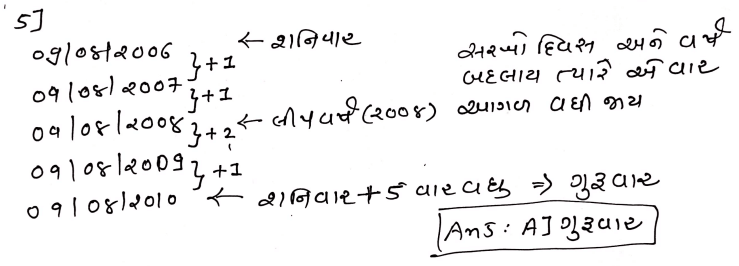 5]
09/08/2006 } +1 ← શનિવાર
09/08/2007 } +1
09/08/2008 } +2 ← લીપવર્ષ (2008)
09/08/2009 } +1
09/08/2010 ← શનિવાર + 5 વાર વધુ ⇒ ગુરૂવાર
સરખો દિવસ અને વર્ષ
બદલાય ત્યારે એ વાર
આગળ વધી જાય
Ans : A] ગુરૂવાર